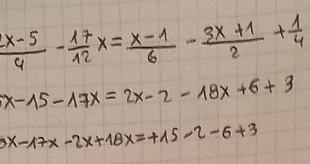 2x-5/4 - 17/12 x = x-1/6 - 3x+1/2 + 1/4
x-15-17x = 2x-2-18x+6+3
x-17x-2x+18x=+15-2-6+3